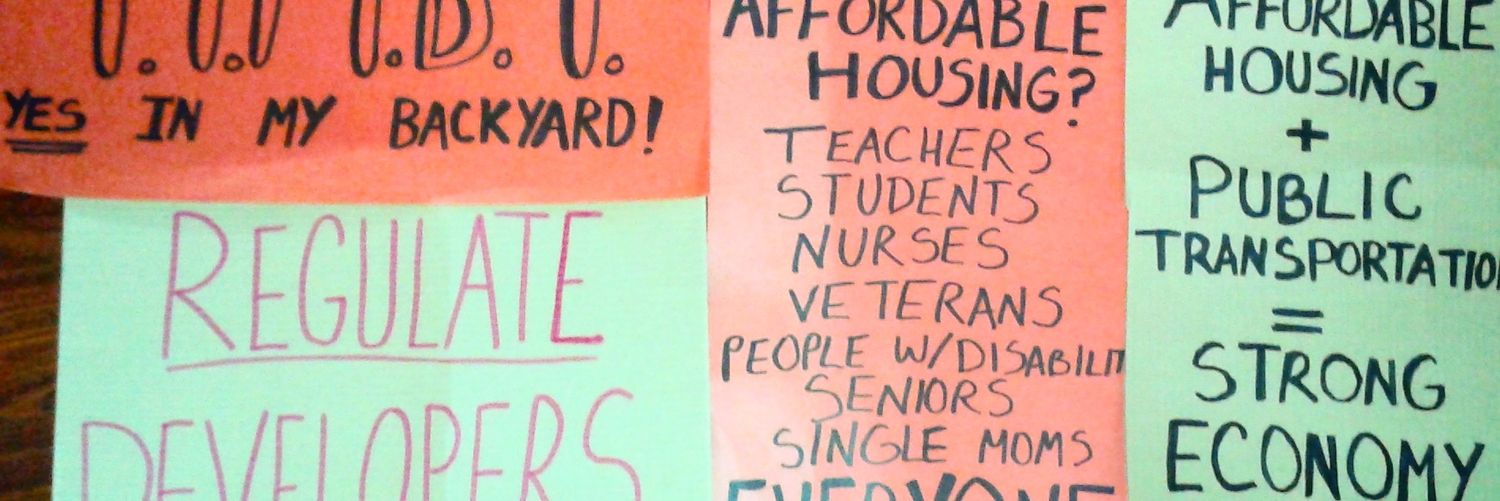 YES IN MY BACKYARD!
REGULATE
DEVELOPERS
AFFORDABLE
HOUSING?
TEACHERS
STUDENTS
NURSES
VETERANS
PEOPLE W/DISABILIT
SENIORS
SINGLE MOMS
EVERYONE
AFFORDABLE
HOUSING
+
PUBLIC
TRANSPORTATIO
=
STRONG
ECONOMY